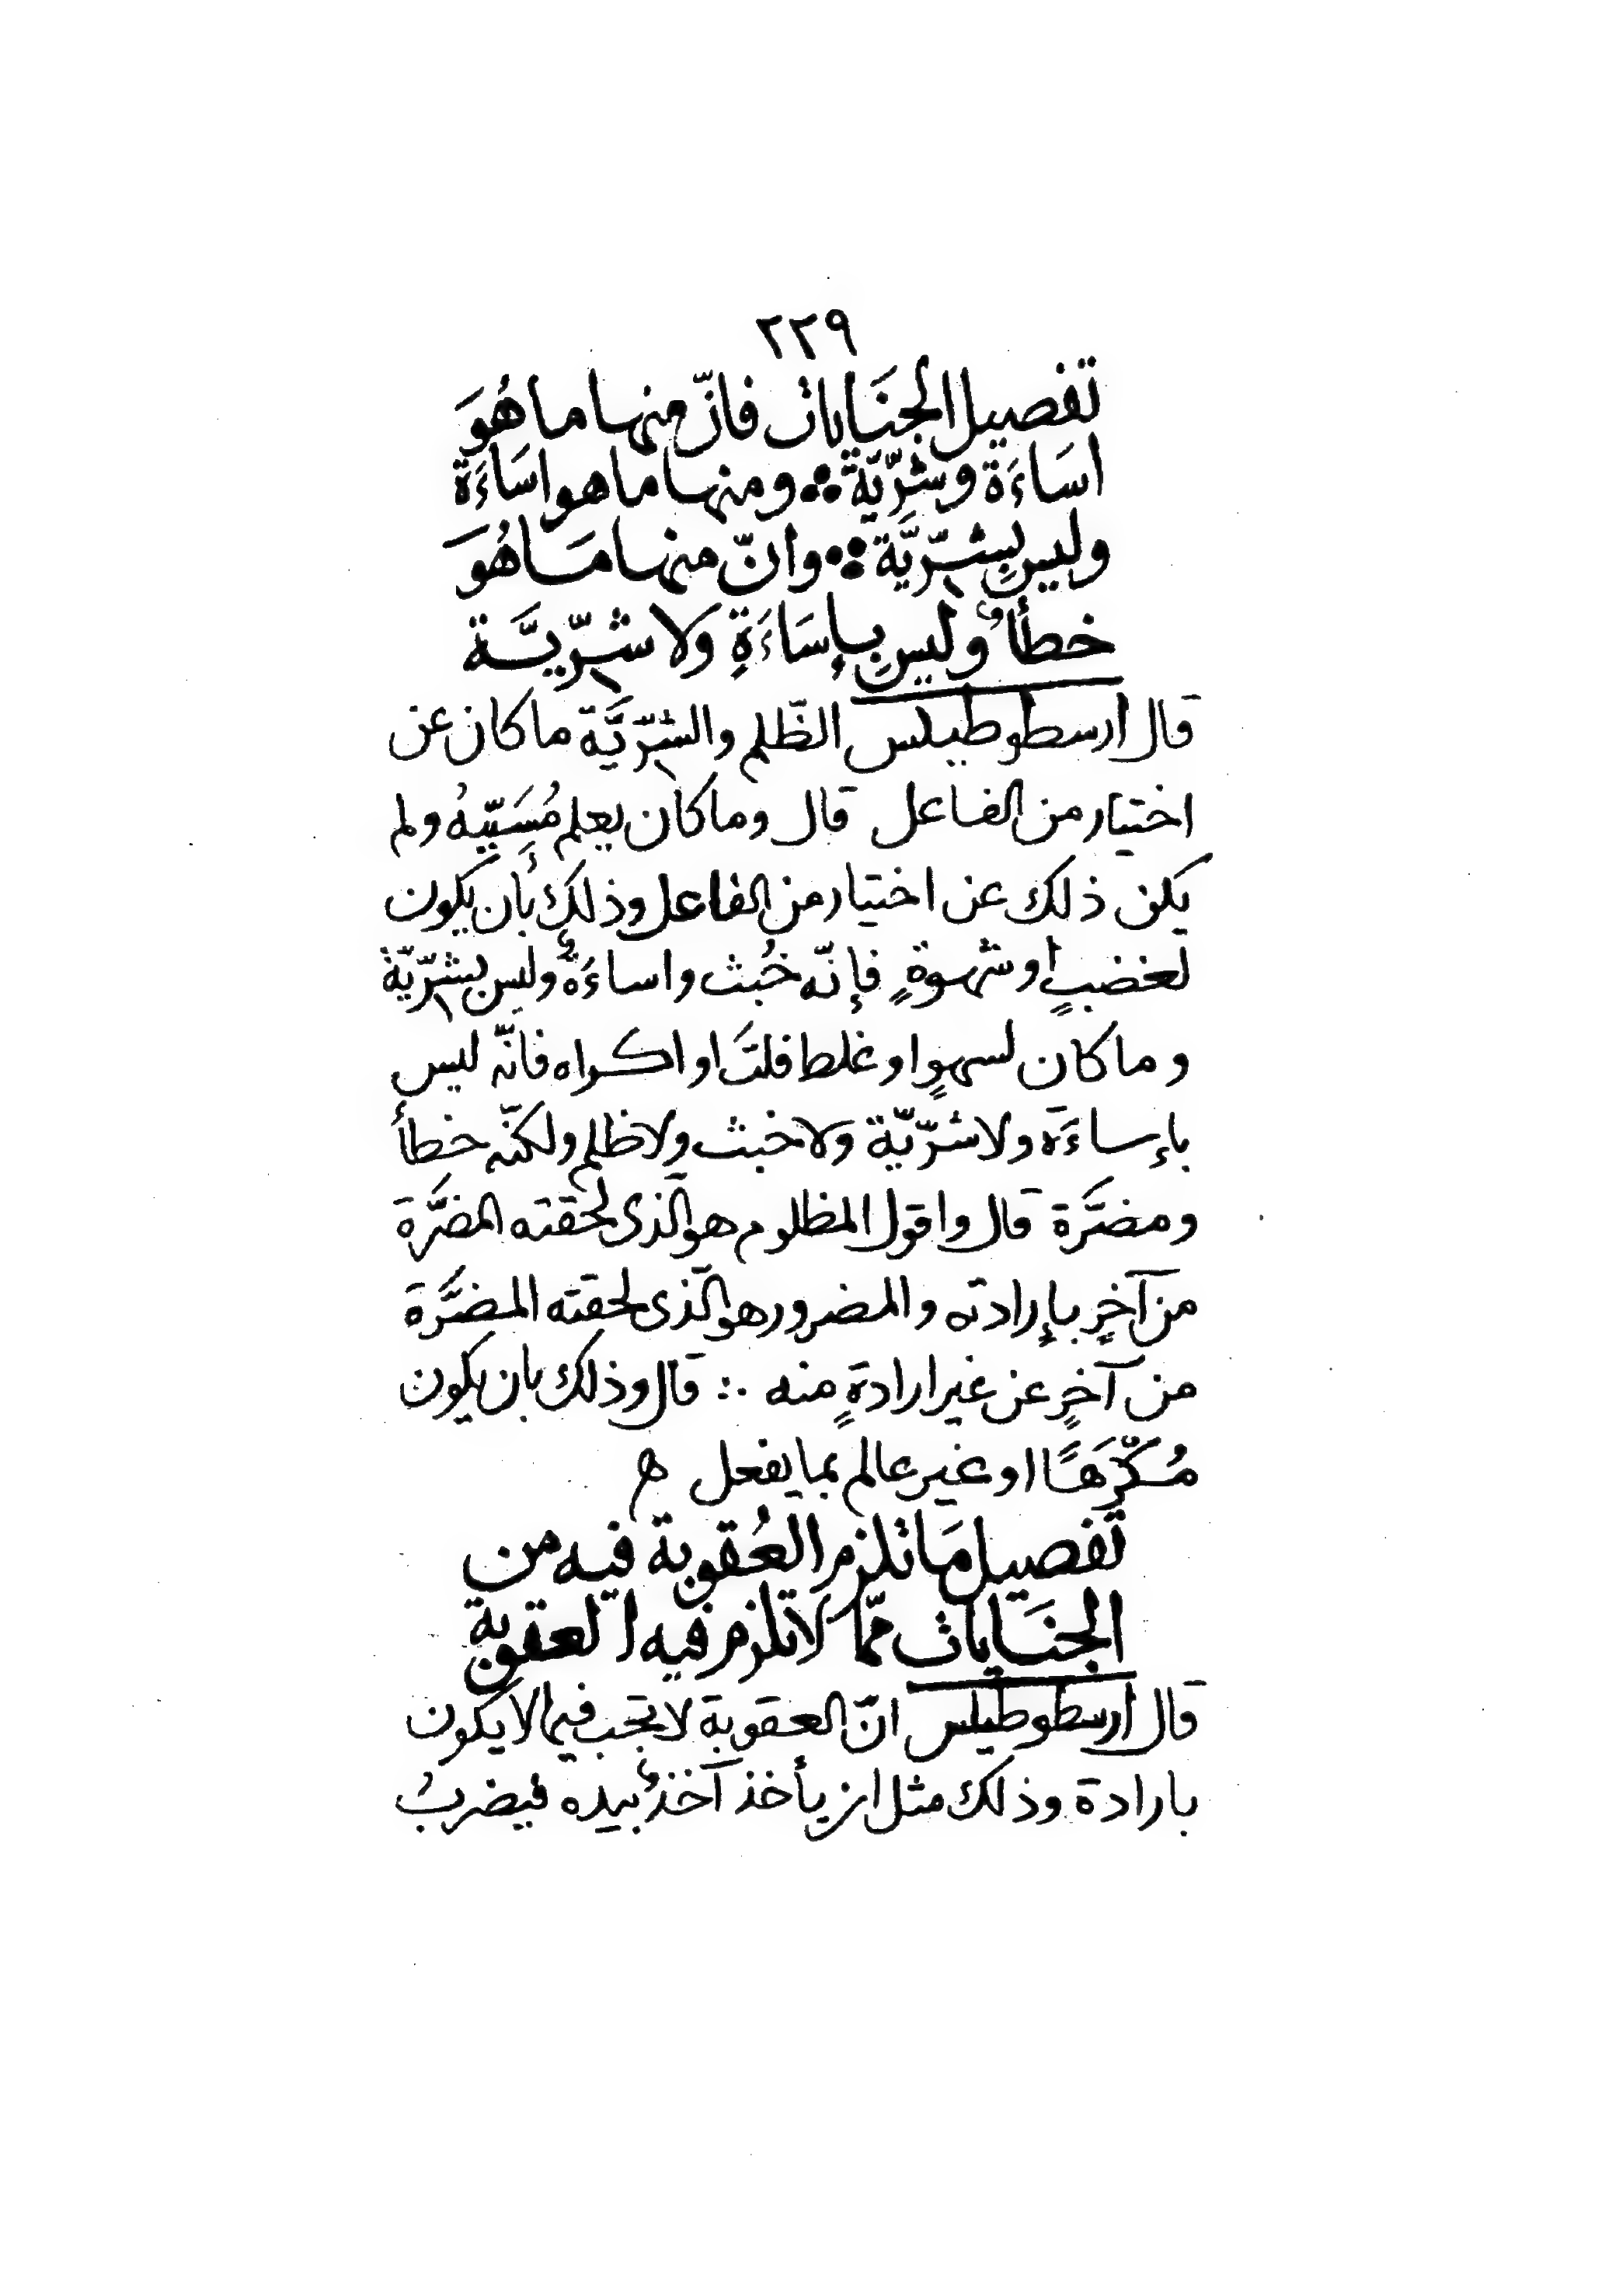 ٢٢٩
تفصيل الجنَايات فانّ منها ما هُوَ
اسَاءَة وشرِّيّة ومنها ما هو اسَاءَة
وليس بِشرّيَّة وانّ منها مَا هُوَ
خطأٌ وليس بإسَاءَةٍ ولا شرّيَّة
قال ارسطوطيلس الظّلم والشرّيَّة ما كان عن
اختيار من الفاعل قال وما كان يعلم مُسَبِّبهُ ولم
يكن ذلك عن اختيار من الفاعل وذلك بأن يكون
لغضبٍ او شهوةٍ فإنّه خُبث واساءَةٌ وليس بشرّيّة
وما كان لسهوٍ او غلط فلتَ او اكراه فانّه ليس
بإساءَة ولا شرّيّة ولا خبث ولا ظلم ولكنّه خطأ
ومضَرَّة قال واقول المظلوم هو الّذى لحقته المضَرَّة
من آخرٍ بإرادته والمضرور هو الّذى لحقته المضَرَّة
من آخرٍ عن غير ارادةٍ منه ∴ قال وذلك بان يكون
مُكرَهًا او غير عالم بما يفعل ه
تفصيل مَا تلزم العُقوبة فيه من
الجنَايات ممّا لا تلزم فيه العقوبة
قال ارسطوطيلس انّ العقوبة لا تجب فيما لا يكون
بارادة وذلك مثل ان يأخذ آخذٌ بيده فيضربُ